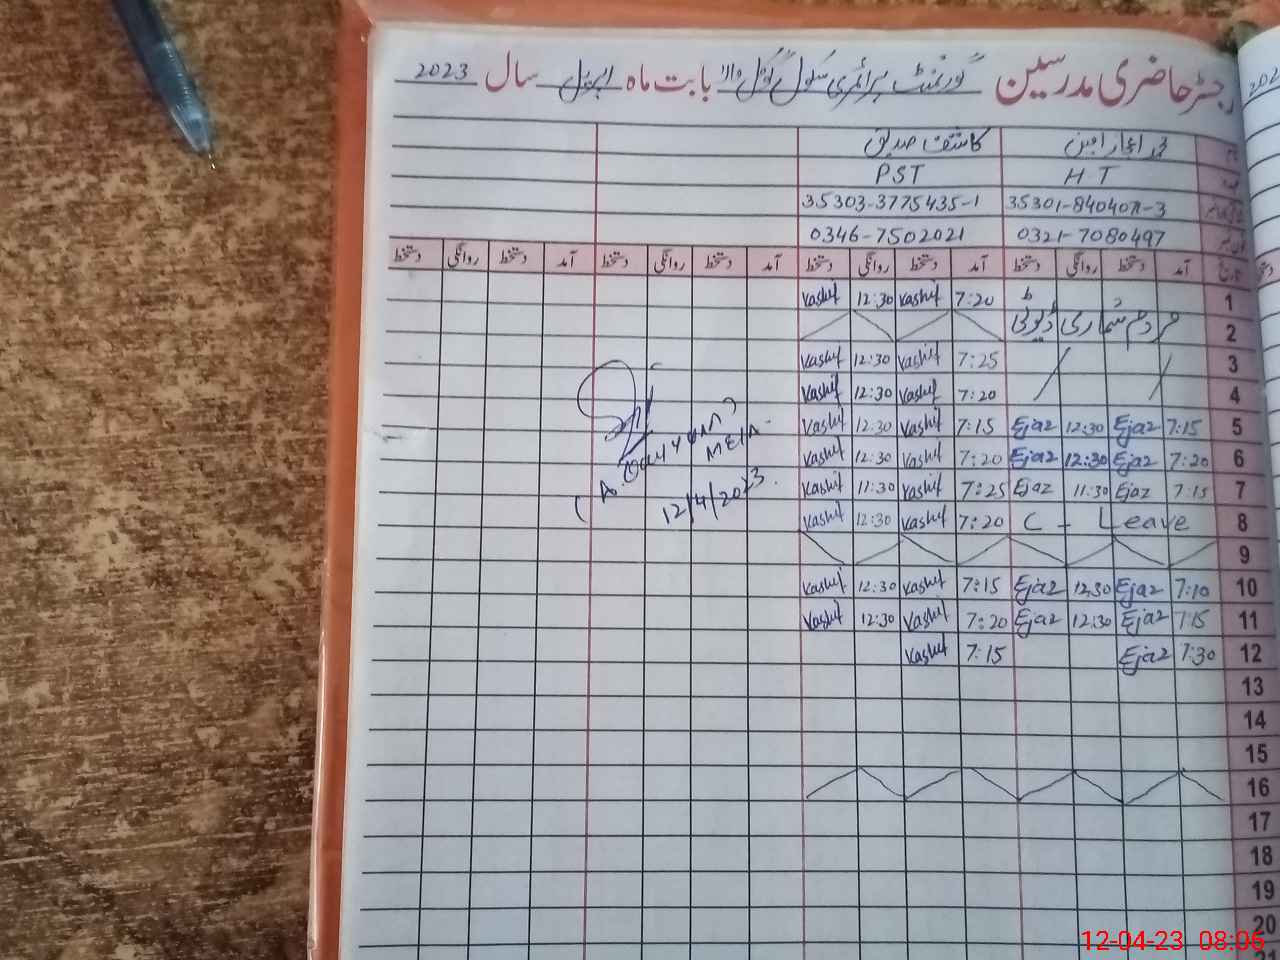 رجسٹر حاضری مدرسین گورنمنٹ پرائمری سکول بابت ماہ اپریل سال 2023
نام محمد اعجاز امین کاشف صدیق
H T PST
35301-8404071-3 35303-3775435-1
0321-7080497 0346-7502021
تاریخ آمد دستخط روانگی دستخط آمد دستخط روانگی دستخط آمد دستخط روانگی دستخط آمد دستخط روانگی دستخط
1 7:20 Kashif 12:30 Kashif
2 مردم شماری ڈیوٹی
3 7:25 Kashif 12:30 Kashif
4 7:20 Kashif 12:30 Kashif
5 7:15 Ejaz 12:30 Ejaz 7:15 Kashif 12:30 Kashif
6 7:20 Ejaz 12:30 Ejaz 7:20 Kashif 12:30 Kashif
7 7:15 Ejaz 11:30 Ejaz 7:25 Kashif 11:30 Kashif
8 C - Leave 7:20 Kashif 12:30 Kashif
9
10 7:10 Ejaz 12:30 Ejaz 7:15 Kashif 12:30 Kashif
11 7:15 Ejaz 12:30 Ejaz 7:20 Kashif 12:30 Kashif
12 7:30 Ejaz 7:15 Kashif
13
14
15
16
17
18
19
20
21
12/4/2023
12-04-23 08:06